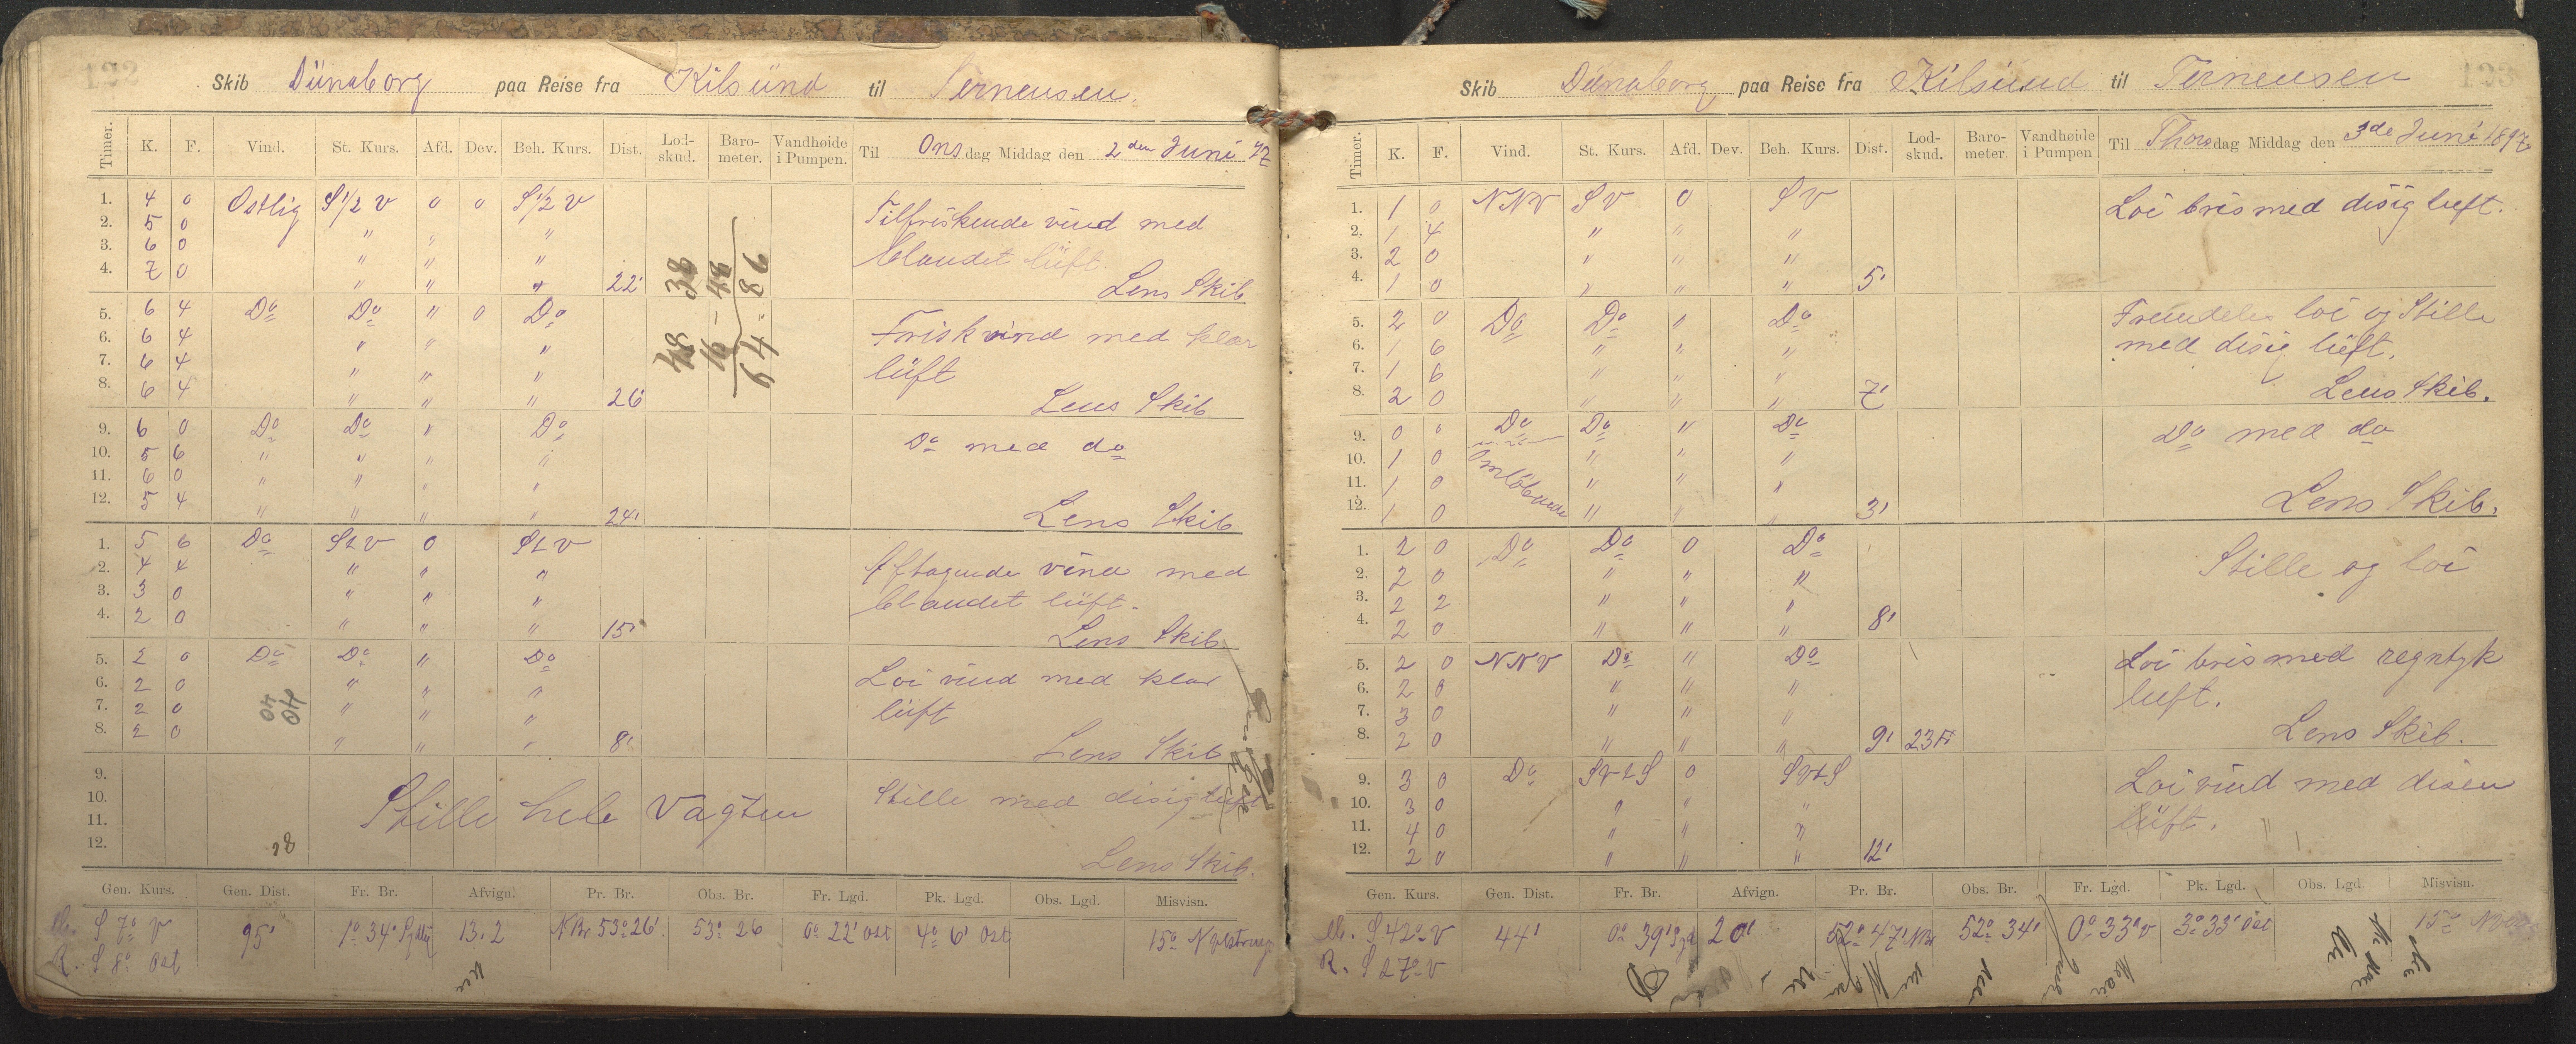 122
Skib Dünaborg paa Reise fra Kilsünd til Terneusen.
Timer. K. F. Vind. St. Kurs. Afd. Dev. Beh. Kurs. Dist. Lod-skud. Baro-meter. Vandhøide i Pumpen. Til Onsdag Middag den 2den Juni 97
1. 4 0 Ostlig S 1/2 V 0 0 S 1/2 V Tilfriskende vind med
2. 5 0 " " " blandet lüft.
3. 6 0 " " "
4. 7 0 " " " 22' Lens Skib
5. 6 4 Do Do " 0 Do Frisk vind med klar
6. 6 4 " " " lüft
7. 6 4 " " "
8. 6 4 " " " 26' Lens Skib
9. 6 0 Do Do " Do Do med do
10. 5 6 " " " "
11. 6 0 " " " "
12. 5 4 " " " " 24' Lens Skib
1. 5 6 Do StV 0 StV Aftagende vind med
2. 4 4 " " " blandet lüft.
3. 3 0 " " "
4. 2 0 " " " 15' Lens Skib
5. 2 0 Do Do " Do Loi vind med klar
6. 2 0 " " " lüft
7. 2 0 " " "
8. 2 0 " " " 8' Lens Skib
9.
10. Stille hele Vagten Stille med disig luft
11.
12. Lens Skib.
38
48
86
48
16
64
40
40
28
Gen. Kurs. Gen. Dist. Fr. Br. Afvign. Pr. Br. Obs. Br. Fr. Lgd. Pk. Lgd. Obs. Lgd. Misvisn.
S 7o V 95' 1o 34' 13.2 N Br 53o 26' 53o 26 0o 22' Ost 4o 6' Ost 15o
R. S 8o Ost
123
Skib Dünaborg paa Reise fra Kilsund til Terneusen
Timer. K. F. Vind. St. Kurs. Afd. Dev. Beh. Kurs. Dist. Lod-skud. Baro-meter. Vandhøide i Pumpen Til Thorsdag Middag den 3de Juni 1897
1. 1 0 NNV SV 0 SV Loi bris med disig luft.
2. 1 4 " " "
3. 2 0 " " "
4. 1 0 " " " 5'
5. 2 0 Do Do " Do Fremdeles loi og Stille
6. 1 6 " " " med disig lüft.
7. 1 6 " " "
8. 2 0 " " " 7' Lens Skib.
9. 0 0 Do Do " Do Do med do
10. 1 0 Omløbende " " "
11. 1 0 " " "
12. 1 0 " " " 3' Lens Skib.
1. 2 0 Do Do 0 Do Stille og loi
2. 2 0 " " "
3. 2 2 " " "
4. 2 0 " " " 8'
5. 2 0 NNV Do " Do Loi bris med regntyk
6. 2 0 " " " luft.
7. 3 0 " " "
8. 2 0 " " " 9' 23 Lens Skib.
9. 3 0 Do SVtS 0 SVtS Loi vind med disen
10. 3 0 " " " lüft.
11. 4 0 " " "
12. 2 0 " " " 12'
Gen. Kurs. Gen. Dist. Fr. Br. Afvign. Pr. Br. Obs. Br. Fr. Lgd. Pk. Lgd. Obs. Lgd. Misvisn.
S 42o V 44' 0o 39' 52o 47' 52o 34' 0o 33' V 3o 33' Ost 15o
R. S 27o V